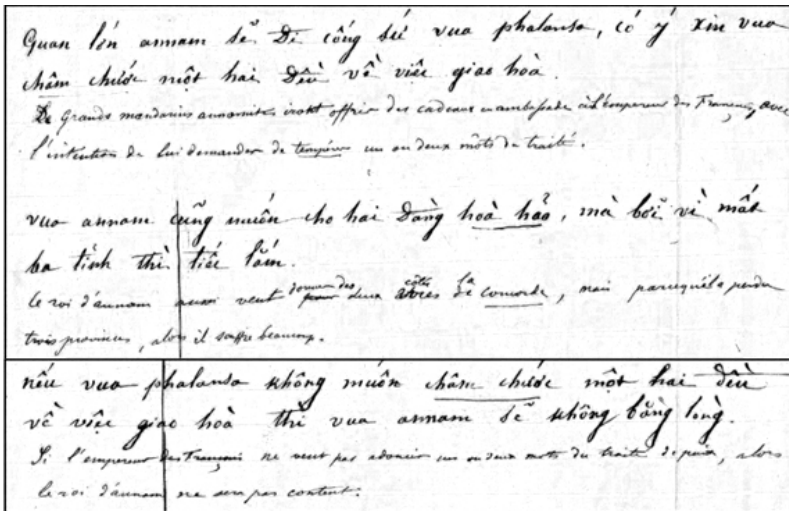 Quan lớn annam sẽ Đi cống sứ vua phalansa, có ý xin vua
châm chước một hai Đều về viêc giao hoà.
De Grands mandarins annamites iront offrir des cadeaux en ambassade à l'empereur des Français, avec
l'intention de lui demander de tempérer un ou deux mots du traité.
vua annam cũng muốn cho hai Đàng hoà hảo, mà bởi vì mất
ba tỉnh thì tiếc lắm.
le roi d'annam aussi veut deux côtés la concorde, mais parcequ'il a perdu
trois provinces, alors il souffre beaucoup.
nếu vua phalansa không muốn châm chước một hai đều
về việc giao hoà thì vua annam sẽ không bằng lòng.
Si l'empereur des Français ne veut pas adoucir un ou deux mots du traité de paix, alors
le roi d'annam ne sera pas content.